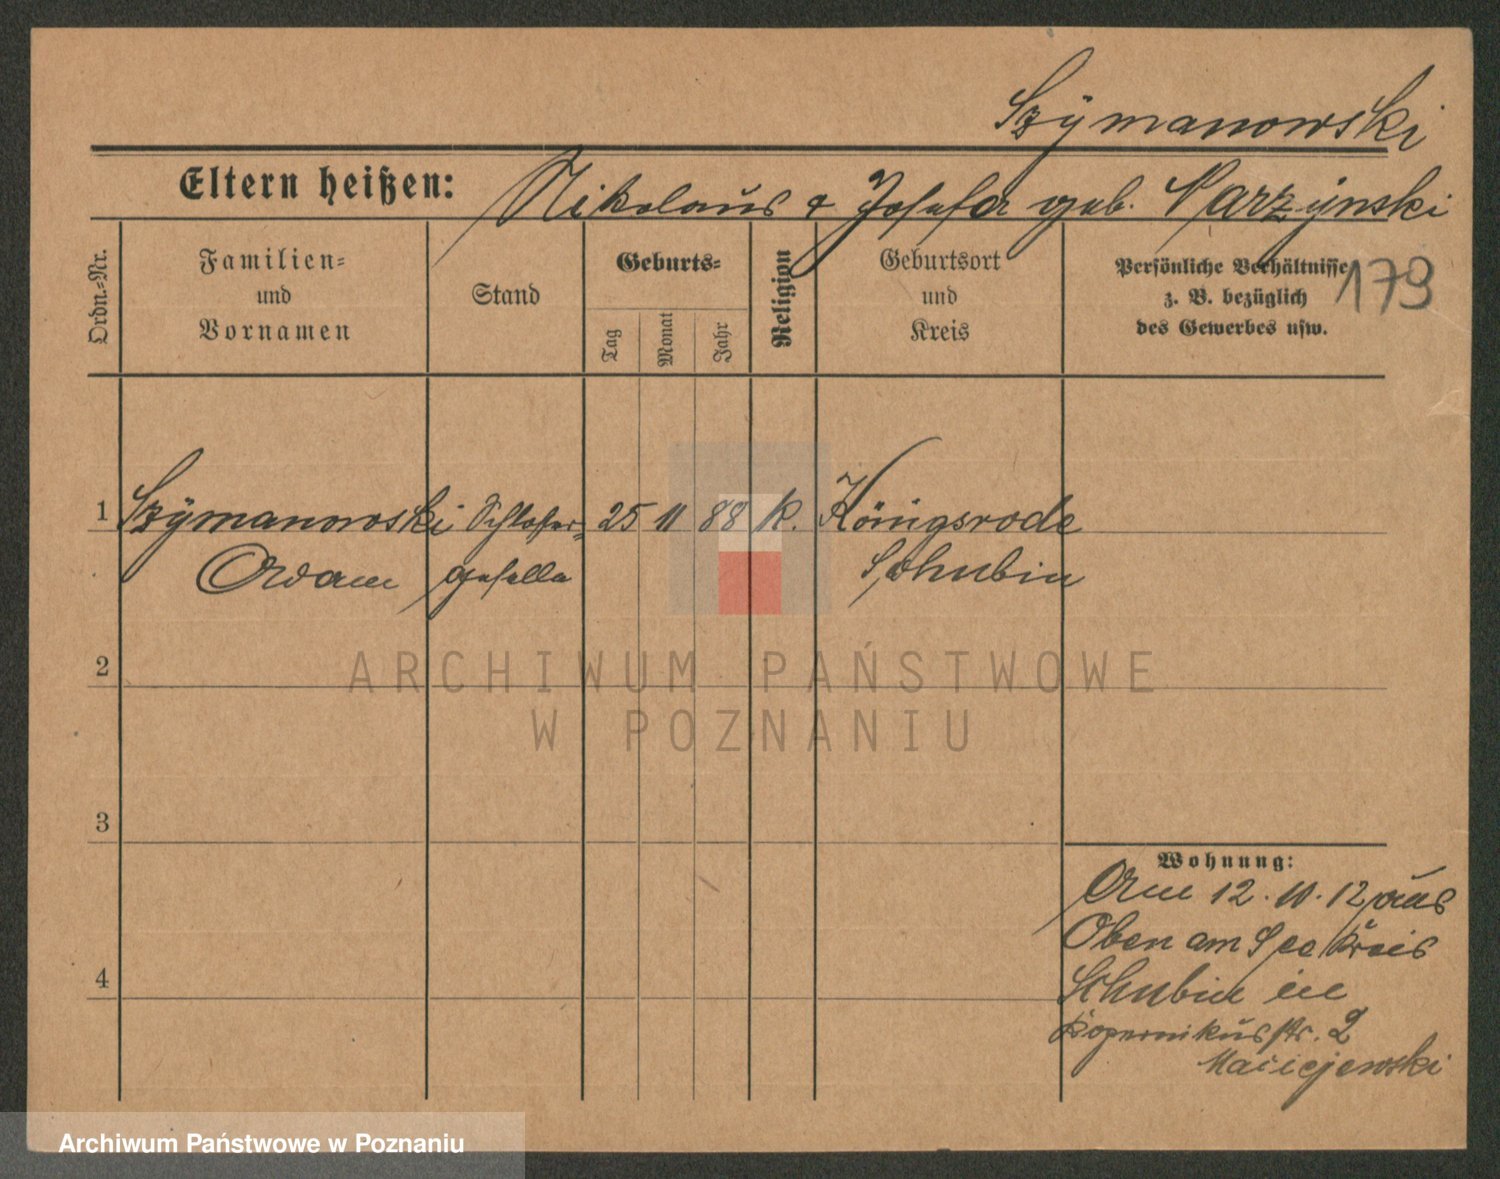 Szÿmanowski
Eltern heißen: Nikolaus & Josefa geb. Parzÿnski
Ordn.-Nr.
Familien-
und
Vornamen
Stand
Geburts-
Tag
Monat
Jahr
Religion
Geburtsort
und
Kreis
Persönliche Verhältnisse
z. B. bezüglich
des Gewerbes usw.
179
1 Szÿmanowski Schlosser- 25 11 88 K. Königsrode
Adam geselle Schubin
2
3
4
Wohnung:
Am 12.10.12 aus
Oben am See Kreis
Schubin in
Kopernikusstr. 2
Maciejewski
ARCHIWUM PAŃSTWOWE
W POZNANIU
Archiwum Państwowe w Poznaniu